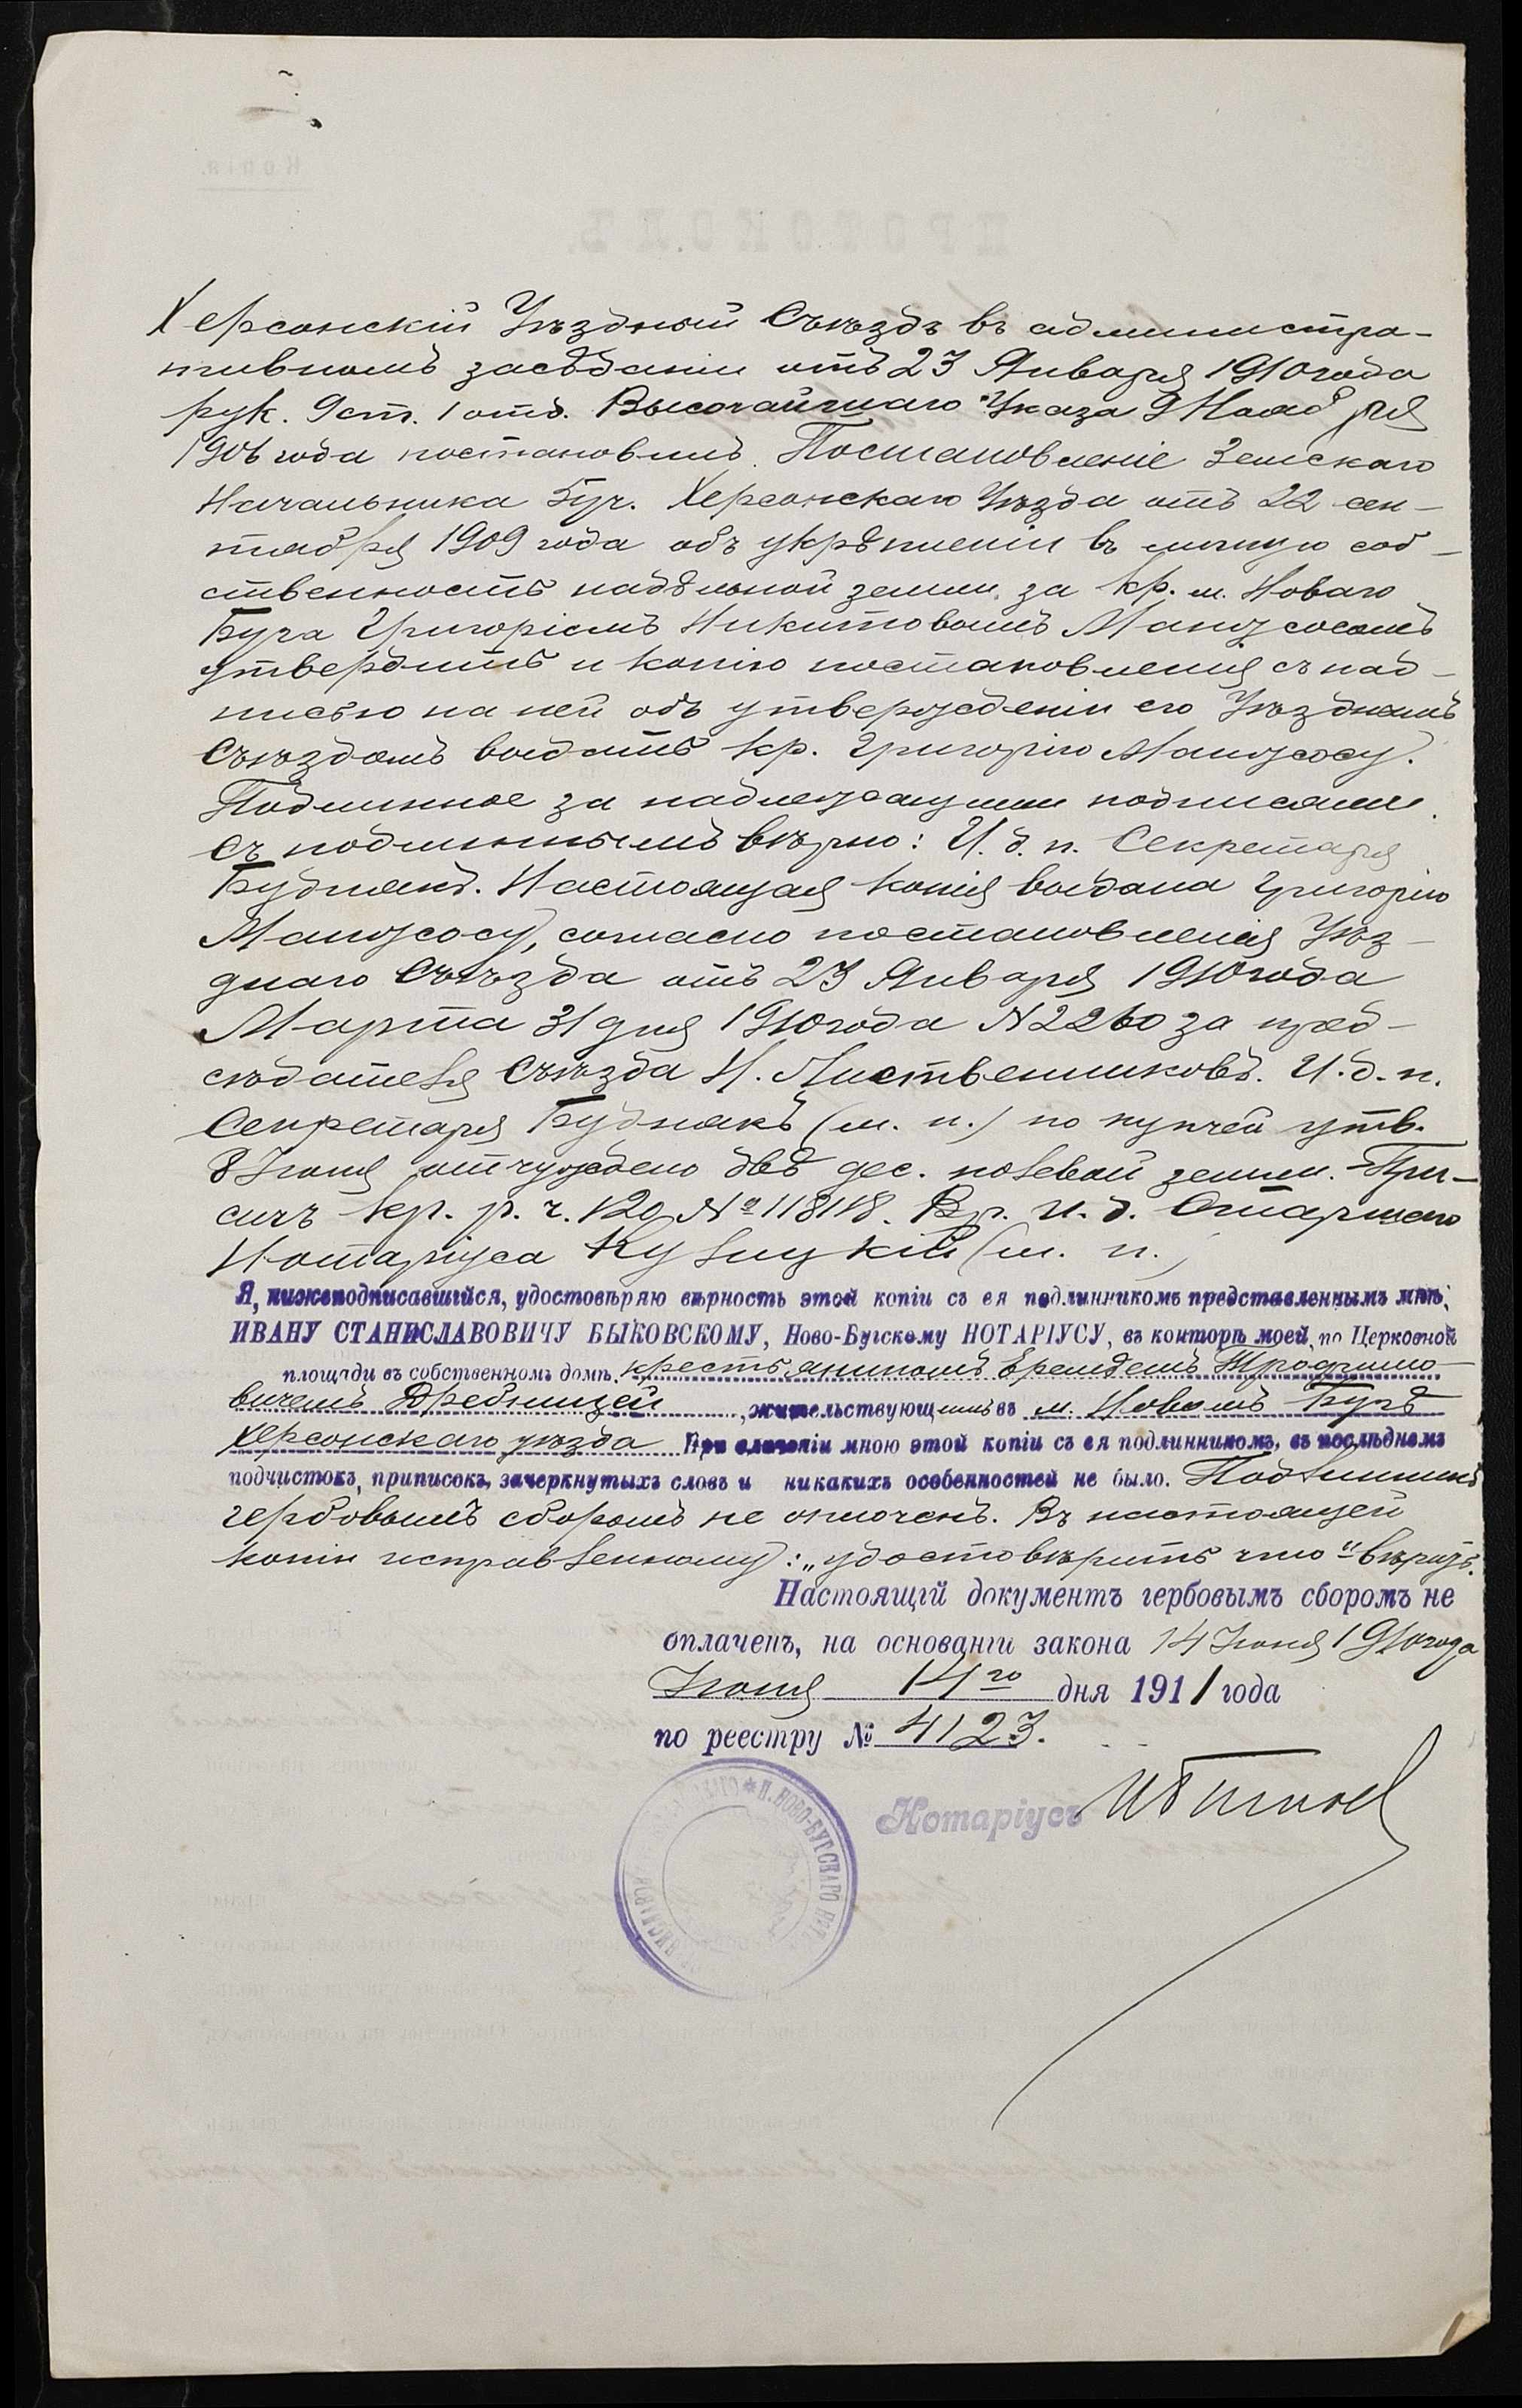 Херсонскій Уѣздный Съѣздъ въ администра-
тивномъ засѣданіи отъ 23 Января 1910 года
рук. 9 ст. 1 отд. Высочайшаго Указа 9 Ноября
1906 года постановилъ. Постановленіе Земскаго
Начальника 5 уч. Херсонскаго Уѣзда отъ 22 сен-
тября 1909 года объ укрѣпленіи въ личную соб-
ственность надѣльной земли, за кр. м. Новаго
Буга Григоріемъ Никитовымъ Манжосомъ
утвердить и копію постановленія съ над-
писью на ней объ утвержденіи его Уѣзднымъ
Съѣздомъ выдать кр. Григорію Манжосу.
Подлинное за надлежащими подписями.
Съ подлиннымъ вѣрно: И. д. п. Секретаря
Буднякъ. Настоящая копія выдана Григорію
Манжосу, согласно постановленія Уѣз-
днаго Съѣзда отъ 23 Января 1910 года
Марта 31 дня 1910 года № 2260 за пред-
сѣдателя Съѣзда Н. Лиственниковъ. И. д. п.
Секретаря Буднякъ (м. п.) по купчей утв.
8 Іюня отчуждено двѣ дес. полевой земли.
кр. р. ч. 129 № 11818. Вр. и. д. Старшаго
Нотаріуса (м. п.)
Я, нижеподписавшійся, удостовѣряю вѣрность этой копіи съ ея подлинникомъ представленнымъ мнѣ,
ИВАНУ СТАНИСЛАВОВИЧУ БЫКОВСКОМУ, Ново-Бугскому НОТАРІУСУ, въ конторѣ моей, по Церковной
площади въ собственномъ домѣ, крестьяниномъ Трофимо-
вичемъ Дребницей, жительствующимъ въ м. Новомъ Бугѣ
Херсонскаго уѣзда При сличеніи мною этой копіи съ ея подлинникомъ, въ послѣднемъ
подчистокъ, приписокъ, зачеркнутыхъ словъ и никакихъ особенностей не было. Подлинникъ
гербовымъ сборомъ не оплоченъ. Въ настоящей
копіи исправленному: „удостовѣрить что" вѣрить.
Настоящій документъ гербовымъ сборомъ не
оплаченъ, на основаніи закона 14 Іюня 1910 года
Іюня 14го дня 1911 года
по реестру № 4123.
Нотаріусъ
Н. НОВО-БУГСКАГО